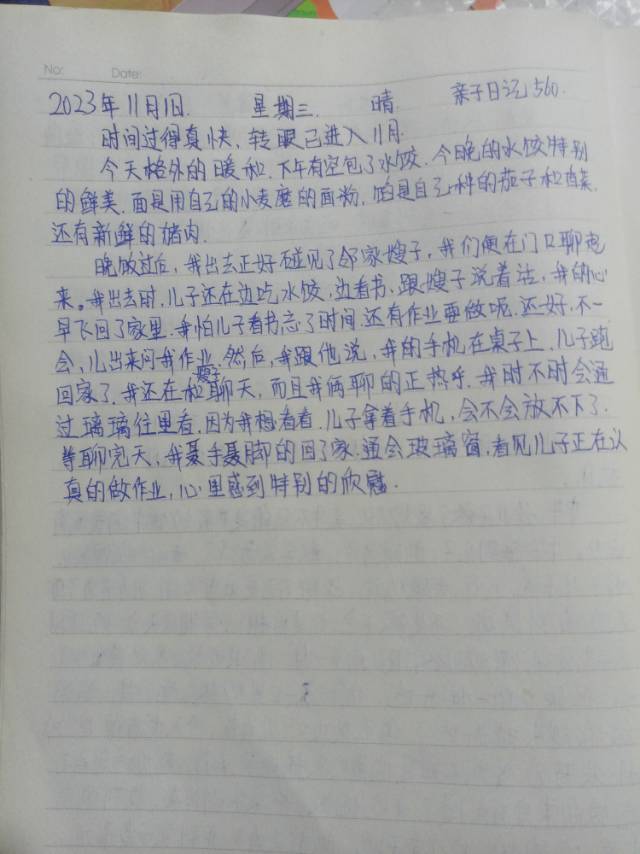 No:    Date:
2023年11月1日.    星期三.    晴.    亲子日记560.
时间过得真快,转眼已进入11月.
今天格外的暖和,下午有空包了水饺.今晚的水饺特别
的鲜美.面是用自己的小麦磨的面粉.馅是自己种的茄子和
还有新鲜的猪肉.
晚饭过后,我出去正好碰见了邻家嫂子,我们便在门口聊起
来。我出去时,儿子还在边吃水饺,边看书,跟嫂子说着话,我的心
早飞回了家里.我怕儿子看书,忘了时间.还有作业要做呢.还好,不一
会,儿出来问我作业.然后,我跟他说,我的手机在桌子上.儿子跑
回家了.我还在和嫂子聊天,而且我俩聊的正热乎.我时不时会通
过璃璃住里看.因为我想看看.儿子拿着手机,会不会放不下了.
等聊完天,我聂手聂脚的回了家.通会玻璃窗,看见儿子正在认
真的做作业,心里感到特别的欣慰.